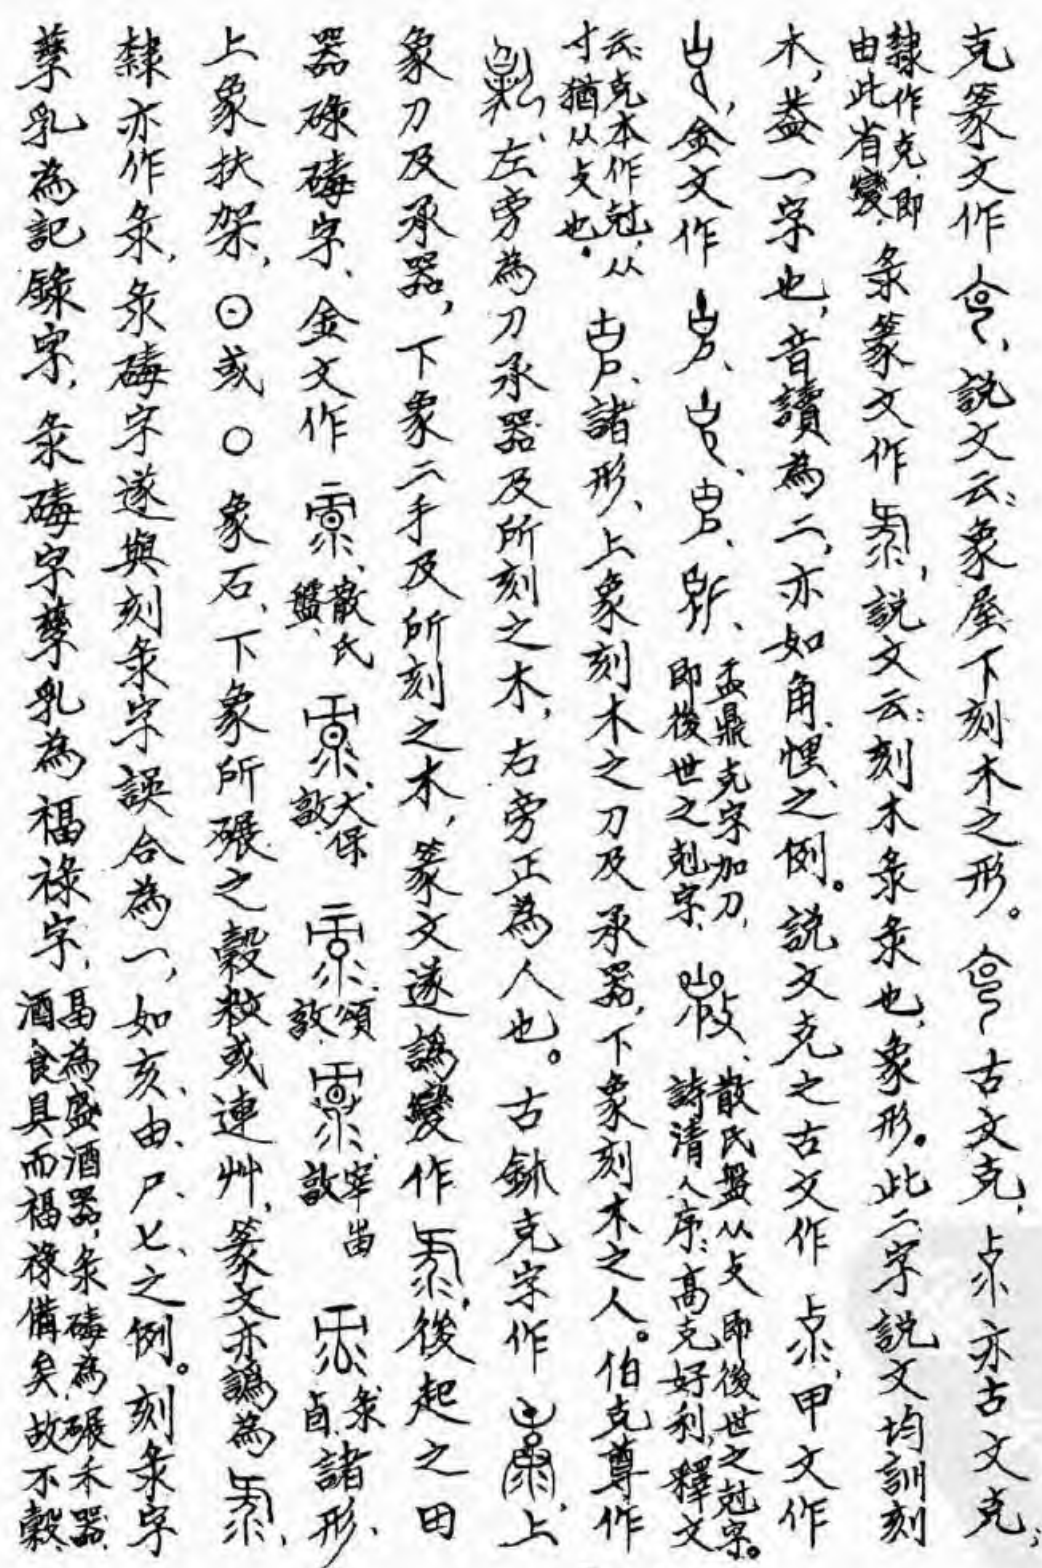 克篆文作、説文云：象屋下刻木之形。古文克，亦古文克；
隸作克，即由此省變，彔篆文作，説文云：刻木彔彔也，象形。此二字説文均訓刻
木，葢一字也，音讀為二，亦如角、惧之例。説文克之古文作，甲文作
，金文作、、、、盂鼎克字加刀，即後世之剋字，、散氏盤从攴即後世之尅字。詩清人序：高克好利，釋文
云：克本作尅，从寸猶从攴也。、諸形、上象刻木之刀及承器，下象刻木之人。伯克尊作
、左旁為刀承器及所刻之木，右旁正為人也。古鉥克字作，上
象刀及承器，下象二手及所刻之木，篆文遂譌變作，後起之田
器磟碡字、金文作、散氏盤、大保敦、頌敦、宰甾敦彔卣、諸形、
上象扶架，⊙或○象石、下象所碾之穀粒或連艸，篆文亦譌為，
隸亦作彔，彔碡字遂與刻彔字誤合為一，如亥、由、尸、七、之例。刻彔字
孳乳為記錄字，彔碡字孳乳為福祿字，畐為盛酒器，彔碡為碾禾器，酒食具而福祿備矣，故不穀